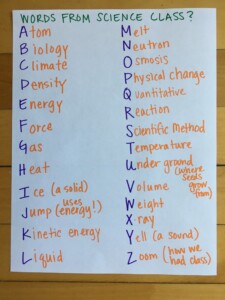 WORDS FROM SCIENCE CLASS?
Atom
Biology
Climate
Density
Energy
Force
Gas
Heat
Ice (a solid)
Jump (uses energy!)
Kinetic energy
Liquid
Melt
Neutron
Osmosis
Physical change
Quantitative
Reaction
Scientific Method
Temperature
Under ground (where seeds grow from)
Volume
Weight
X-ray
Yell (a sound)
Zoom (how we had class)